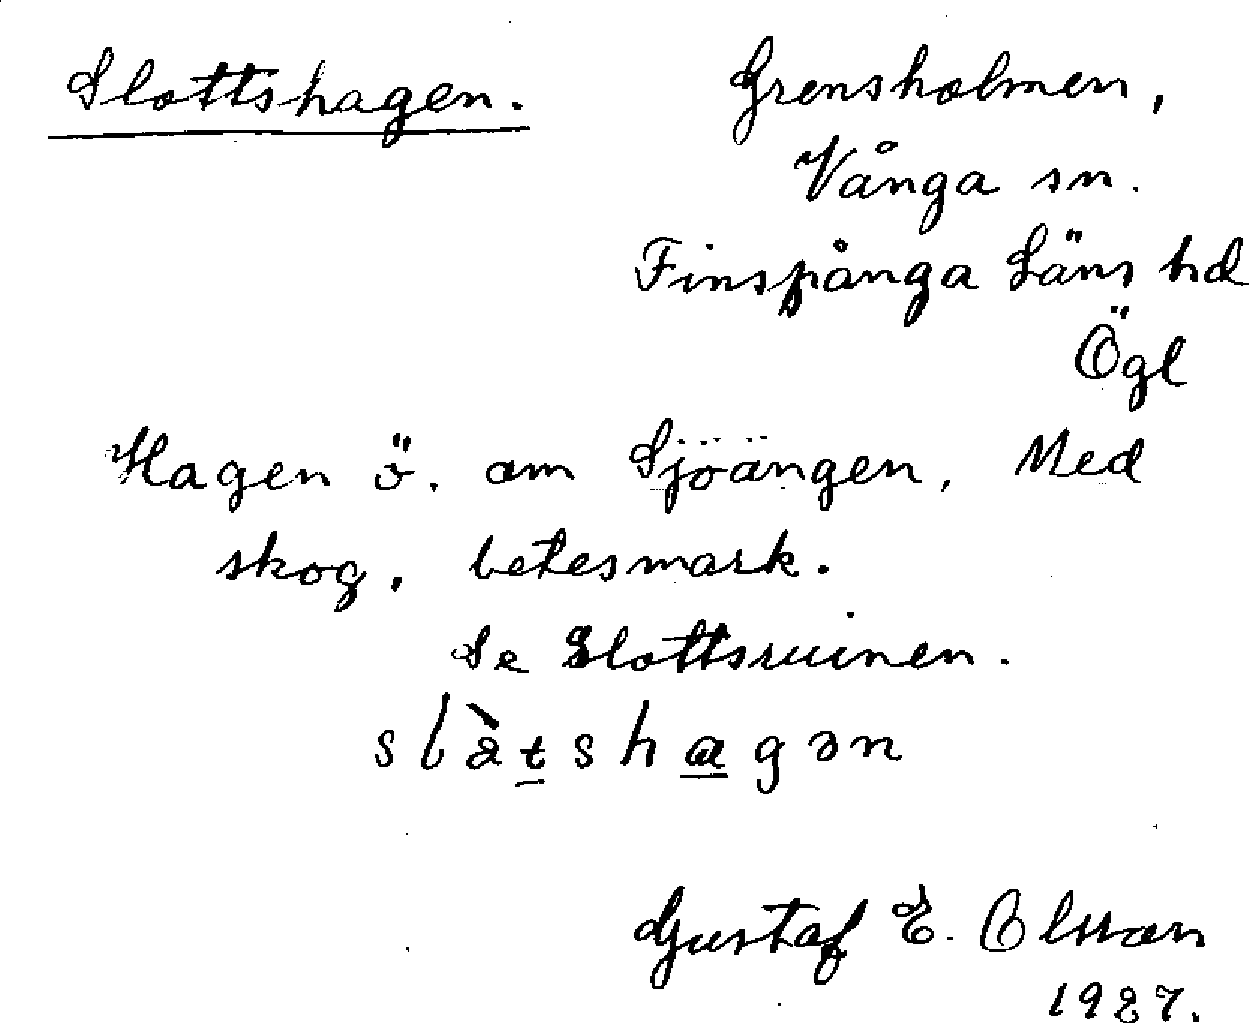 Slottshagen.
Grensholmen,
Vånga sn.
Finspånga Läns hd
Ögl
Hagen ö. om Sjöängen, Med
skog, betesmark.
Se Slottsruinen.
slåtshagən
Gustaf E. Olsson
1927.